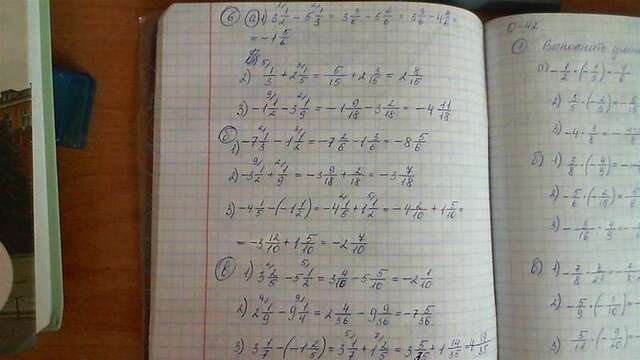 6 а) 1) 3 1/2 - 5 1/3 = 3 3/6 - 5 2/6 = 3 3/6 - 4 8/6 =
= -1 5/6
2) 1/3 + 2 1/5 = 5/15 + 2 3/15 = 2 8/15
3) -1 1/2 - 3 1/9 = -1 9/18 - 3 2/18 = -4 11/18
б) 1) -7 1/3 - 1 1/2 = -7 2/6 - 1 3/6 = -8 5/6
2) -3 1/2 + 1/9 = -3 9/18 + 2/18 = -3 7/18
3) -4 1/5 - (-1 1/2) = -4 1/5 + 1 1/2 = -4 2/10 + 1 5/10 =
= -3 12/10 + 1 5/10 = -2 7/10
в) 1) 3 2/5 - 5 1/2 = 3 4/10 - 5 5/10 = -2 1/10
2) 2 1/9 - 9 1/4 = 2 4/36 - 9 9/36 = -7 5/36
3) 3 1/7 - (-1 2/5) = 3 1/7 + 1 2/5 = 3 5/35 + 1 14/35 = 4 19/35
С-42
1) Выполните
а) 1) -1/2 · (-1/3) =
2) 3/5 · (-2/3) =
3) -4 · 3/8 =
б) 1) 3/8 · (-4/9) =
2) -5/6 ·
3)
в) 1) -7/8 ·
2) -5/9 · (-3/10) =
3) 5/12 · (-9/10)